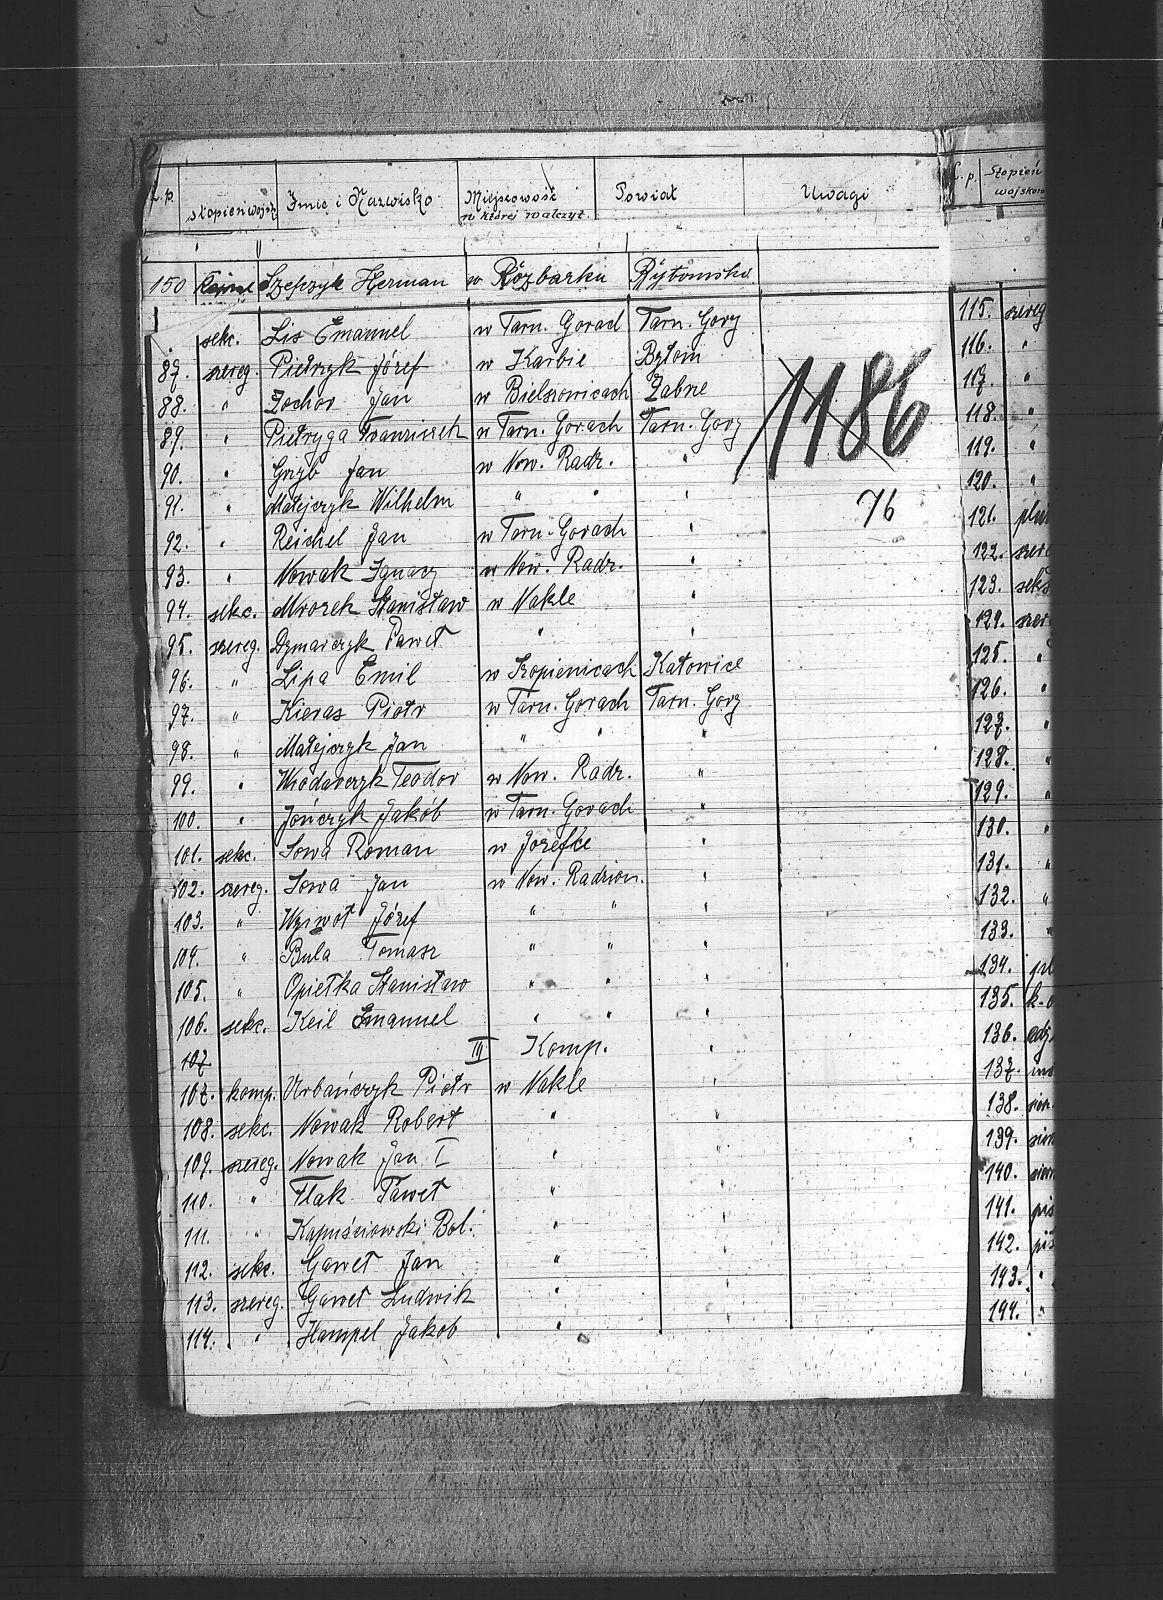 L.p. stopień wojsk. Imię i Nazwisko Miejscowość w której walczył Powiat Uwagi
150 Szefczyk Herman w Rozbarku Bytomsko
sekc. Lis Emanuel w Tarn. Gorach Tarn. Gory
87. szereg. Pietrzyk Józef w Karbie Bytom
88. " Zochor Jan w Bielszowicach Zabrze
89. " Pietryga Franciszek w Tarn. Gorach Tarn. Gory
90. " Gryb Jan w Now. Radz. "
91. " Matejczyk Wilhelm " " "
92. " Reichel Jan w Tarn. Gorach "
93. " Nowak Ignacy w Now. Radz. "
94. sekc. Mrozek Stanisław w Nakle "
95. szereg. Dymarczyk Paweł " "
96. " Lipa Emil w Szopienicach Katowice
97. " Kieras Piotr w Tarn. Gorach Tarn. Gory
98. " Matejczyk Jan " " "
99. " Włodarczyk Teodor w Now. Radz. "
100. " Jończyk Jakób w Tarn. Gorach "
101. sekc. Sowa Roman w Jozefce "
102. szereg. Sowa Jan w Now. Radzion. "
103. " Wyiwoł Józef " " "
104. " Bula Tomasz " " "
105. " Opiełka Stanisław " " "
106. sekc. Keil Emanuel " " "
107 III Komp. "
107. komp. Urbańczyk Piotr w Nakle "
108. sekc. Nowak Robert " "
109. szereg. Nowak Jan I " "
110. " Flak Paweł " "
111. " Kapuściowski Bol. " "
112. sekc. Gaweł Jan " "
113. szereg. Gaweł Ludwik " "
114. " Hampel Jakob " "
1186
76
L.p. Stopień
115. szereg
116. "
117. "
118. "
119. "
120. "
121.
122.
123.
124.
125. "
126. "
127. "
128. "
129. "
130. "
131. "
132. "
133. "
134.
135.
136.
137.
138.
139.
140.
141.
142.
143. "
144. "